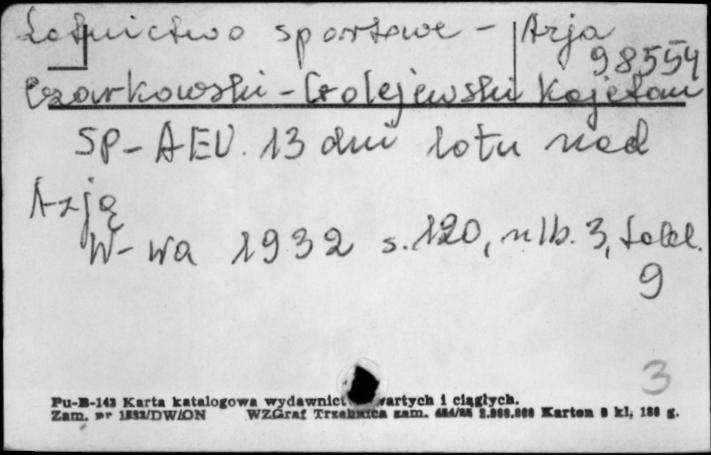 Lotnictwo sportowe - Azja
98554
Czarkowski-Golejewski Kajetan
SP-AEU. 13 dni lotu nad
Azją
W-wa 1932 s. 120, nlb. 3, tabl.
9
3
Pu-B-143 Karta katalogowa wydawnict wartych i ciągłych.
Zam. nr 1532/DW/ON WZGraf Trzebnica zam. Karton kl, 180 g.